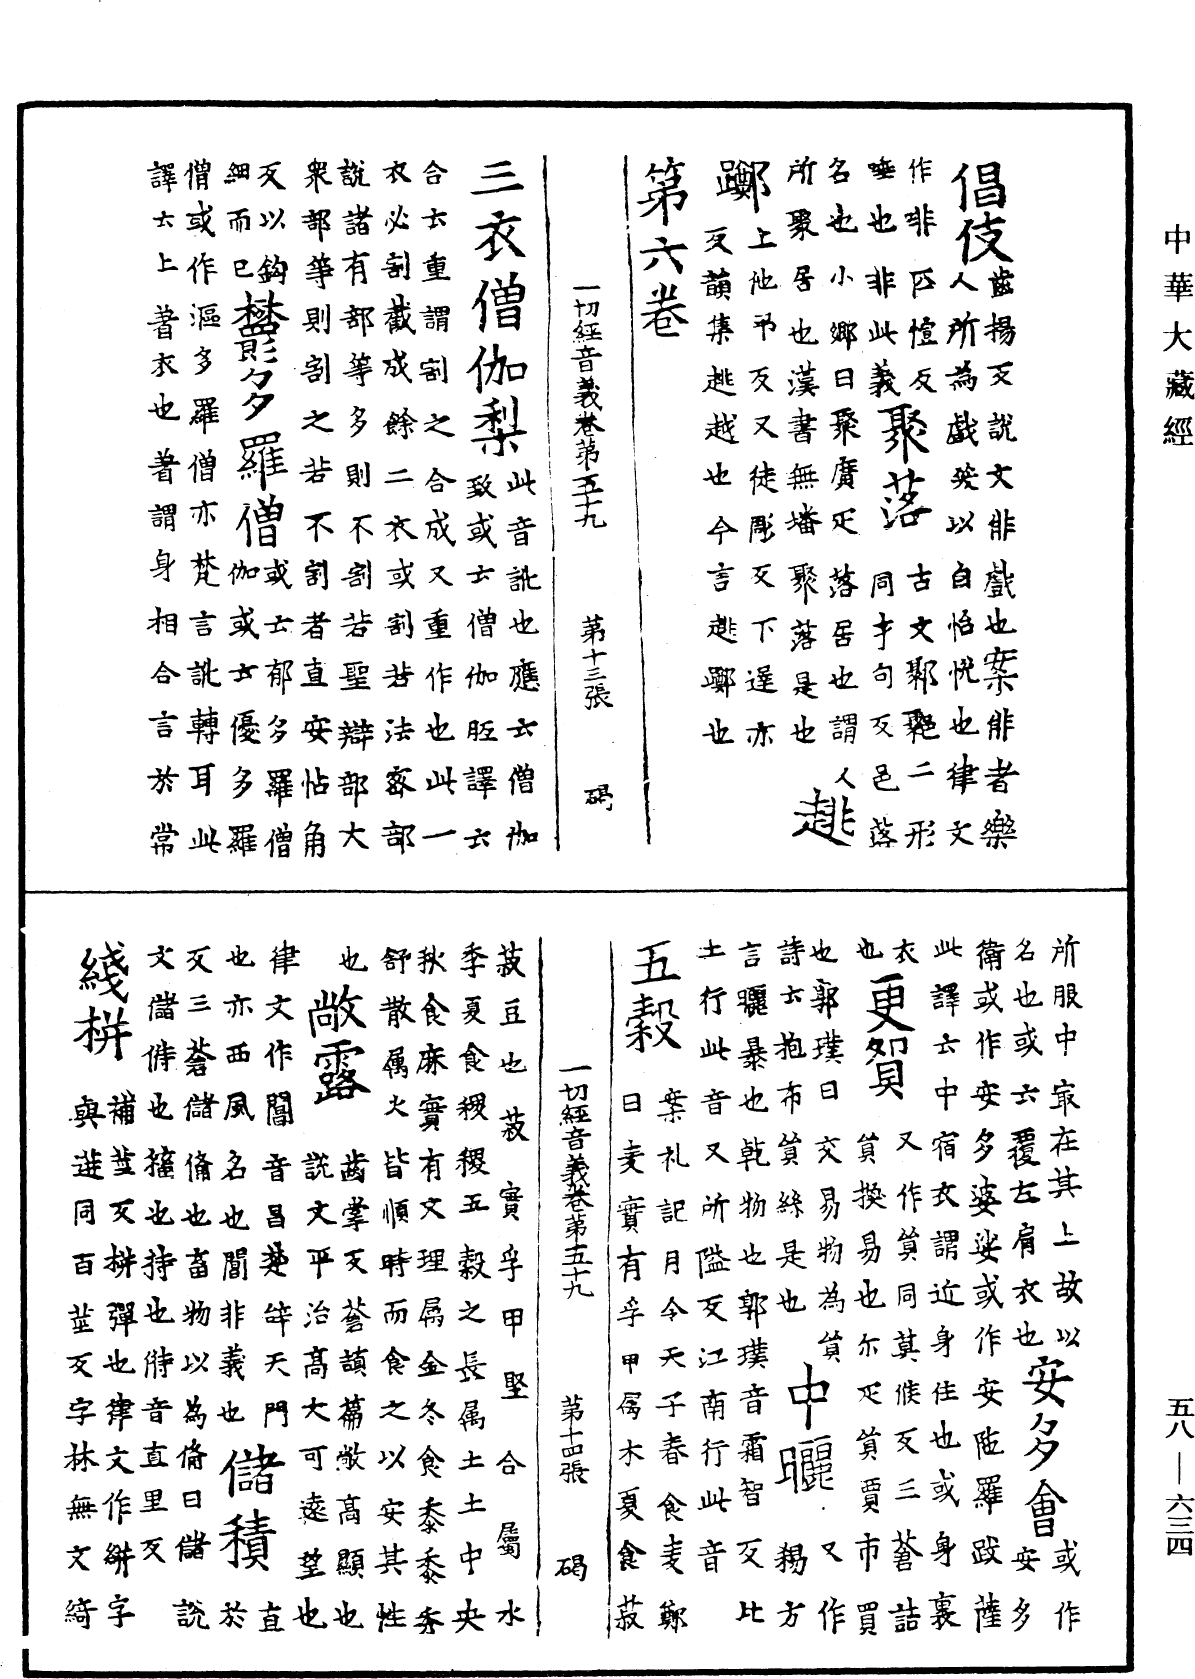 中華大藏經
倡伎齒揚反說文俳戲也案俳者樂
人所為戲笑以自怡悅也律文
作啡匹愷反聚落古文鄹㽛二形
唾也非此義同才句反邑落
名也小鄉曰聚廣疋落居也謂人
所聚居也漢書無墦聚落是也趒
躑上他吊反又徒彫反下逹亦
反韻集趒越也今言趒躑也
第六卷
一切經音義卷第五十九 第十三張 碣
三衣僧伽梨此音訛也應云僧伽
致或云僧伽胝譯云
合云重謂割之合成又重作也此一
衣必割截成餘二衣或割若法密部
說諸有部等多則不割若聖辯部大
衆部等則割之若不割者直安怗角
反以鈎欝多羅僧或云郁多羅僧
紐而已伽或云優多羅
僧或作漚多羅僧亦梵言訛轉耳此
譯云上著衣也著謂身相合言於常
所服中㝡在其上故以安多會或作
名也或云覆左肩衣也安多
衛或作安多婆娑或作安陁羅跋薩
此譯云中宿衣謂近身住也或身裏
衣更貿又作貿同莫候反三蒼詁
也貿換易也尒疋貿賈市買
也郭璞曰交易物為貿中曬又作
詩云抱布貿絲是也楊方
言曬暴也乾物也郭璞音霜智反比
土行此音又所隘反江南行此音
五穀案礼記月令天子春食麦鄭
曰麦實有孚甲屬木夏食菽
一切經音義卷第五十九 第十四張 碣
菽豆也菽實孚甲堅合屬水
季夏食稷稷五穀之長屬土土中央
秋食麻實有文理屬金冬食黍黍秀
舒散屬火皆順時而食之以安其性
也敞露齒掌反蒼頡篇敞高顯也
說文平治髙大可遠望也
律文作閶音昌楚辞天門直
也亦西風名也閶非義也儲積於
反三蒼儲偹也畜物以為偹曰儲說
文儲偫也㩁也持也偫音直里反
綫栟補莖反栟彈也律文作絣字
與迸同百莖反字林無文綺
五八—六三四